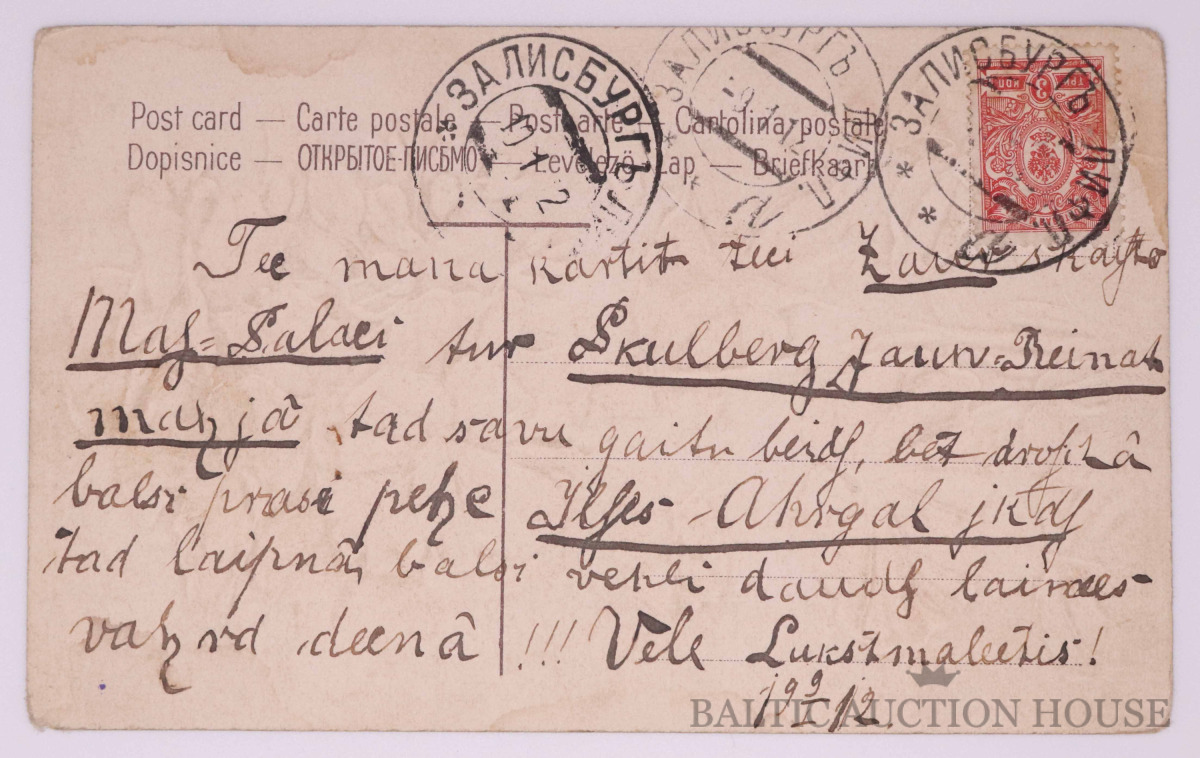 Post card — Carte postale — Postcarte — Cartolina postale
Dopisnice — ОТКРЫТОЕ-ПИСЬМО — Levelező Lap — Briefkaart
ЗАЛИСБУРГЪ
ЗАЛИСБУРГЪ ЛИФЛ.
ЗАЛИСБУРГЪ ЛИФЛ.
3 КОП
Tee mana kartit zur
Mas=Salaci tur Skulberg Jaun=Reinat
mahjâ tad savu gaitu beids, bet
balsi prasi pehz Ilses
tad laipnâ balsi vehli dauds laimes
deenâ !!! Vele Lukstmaletis!
19 9/I 12.
BALTIC AUCTION HOUSE